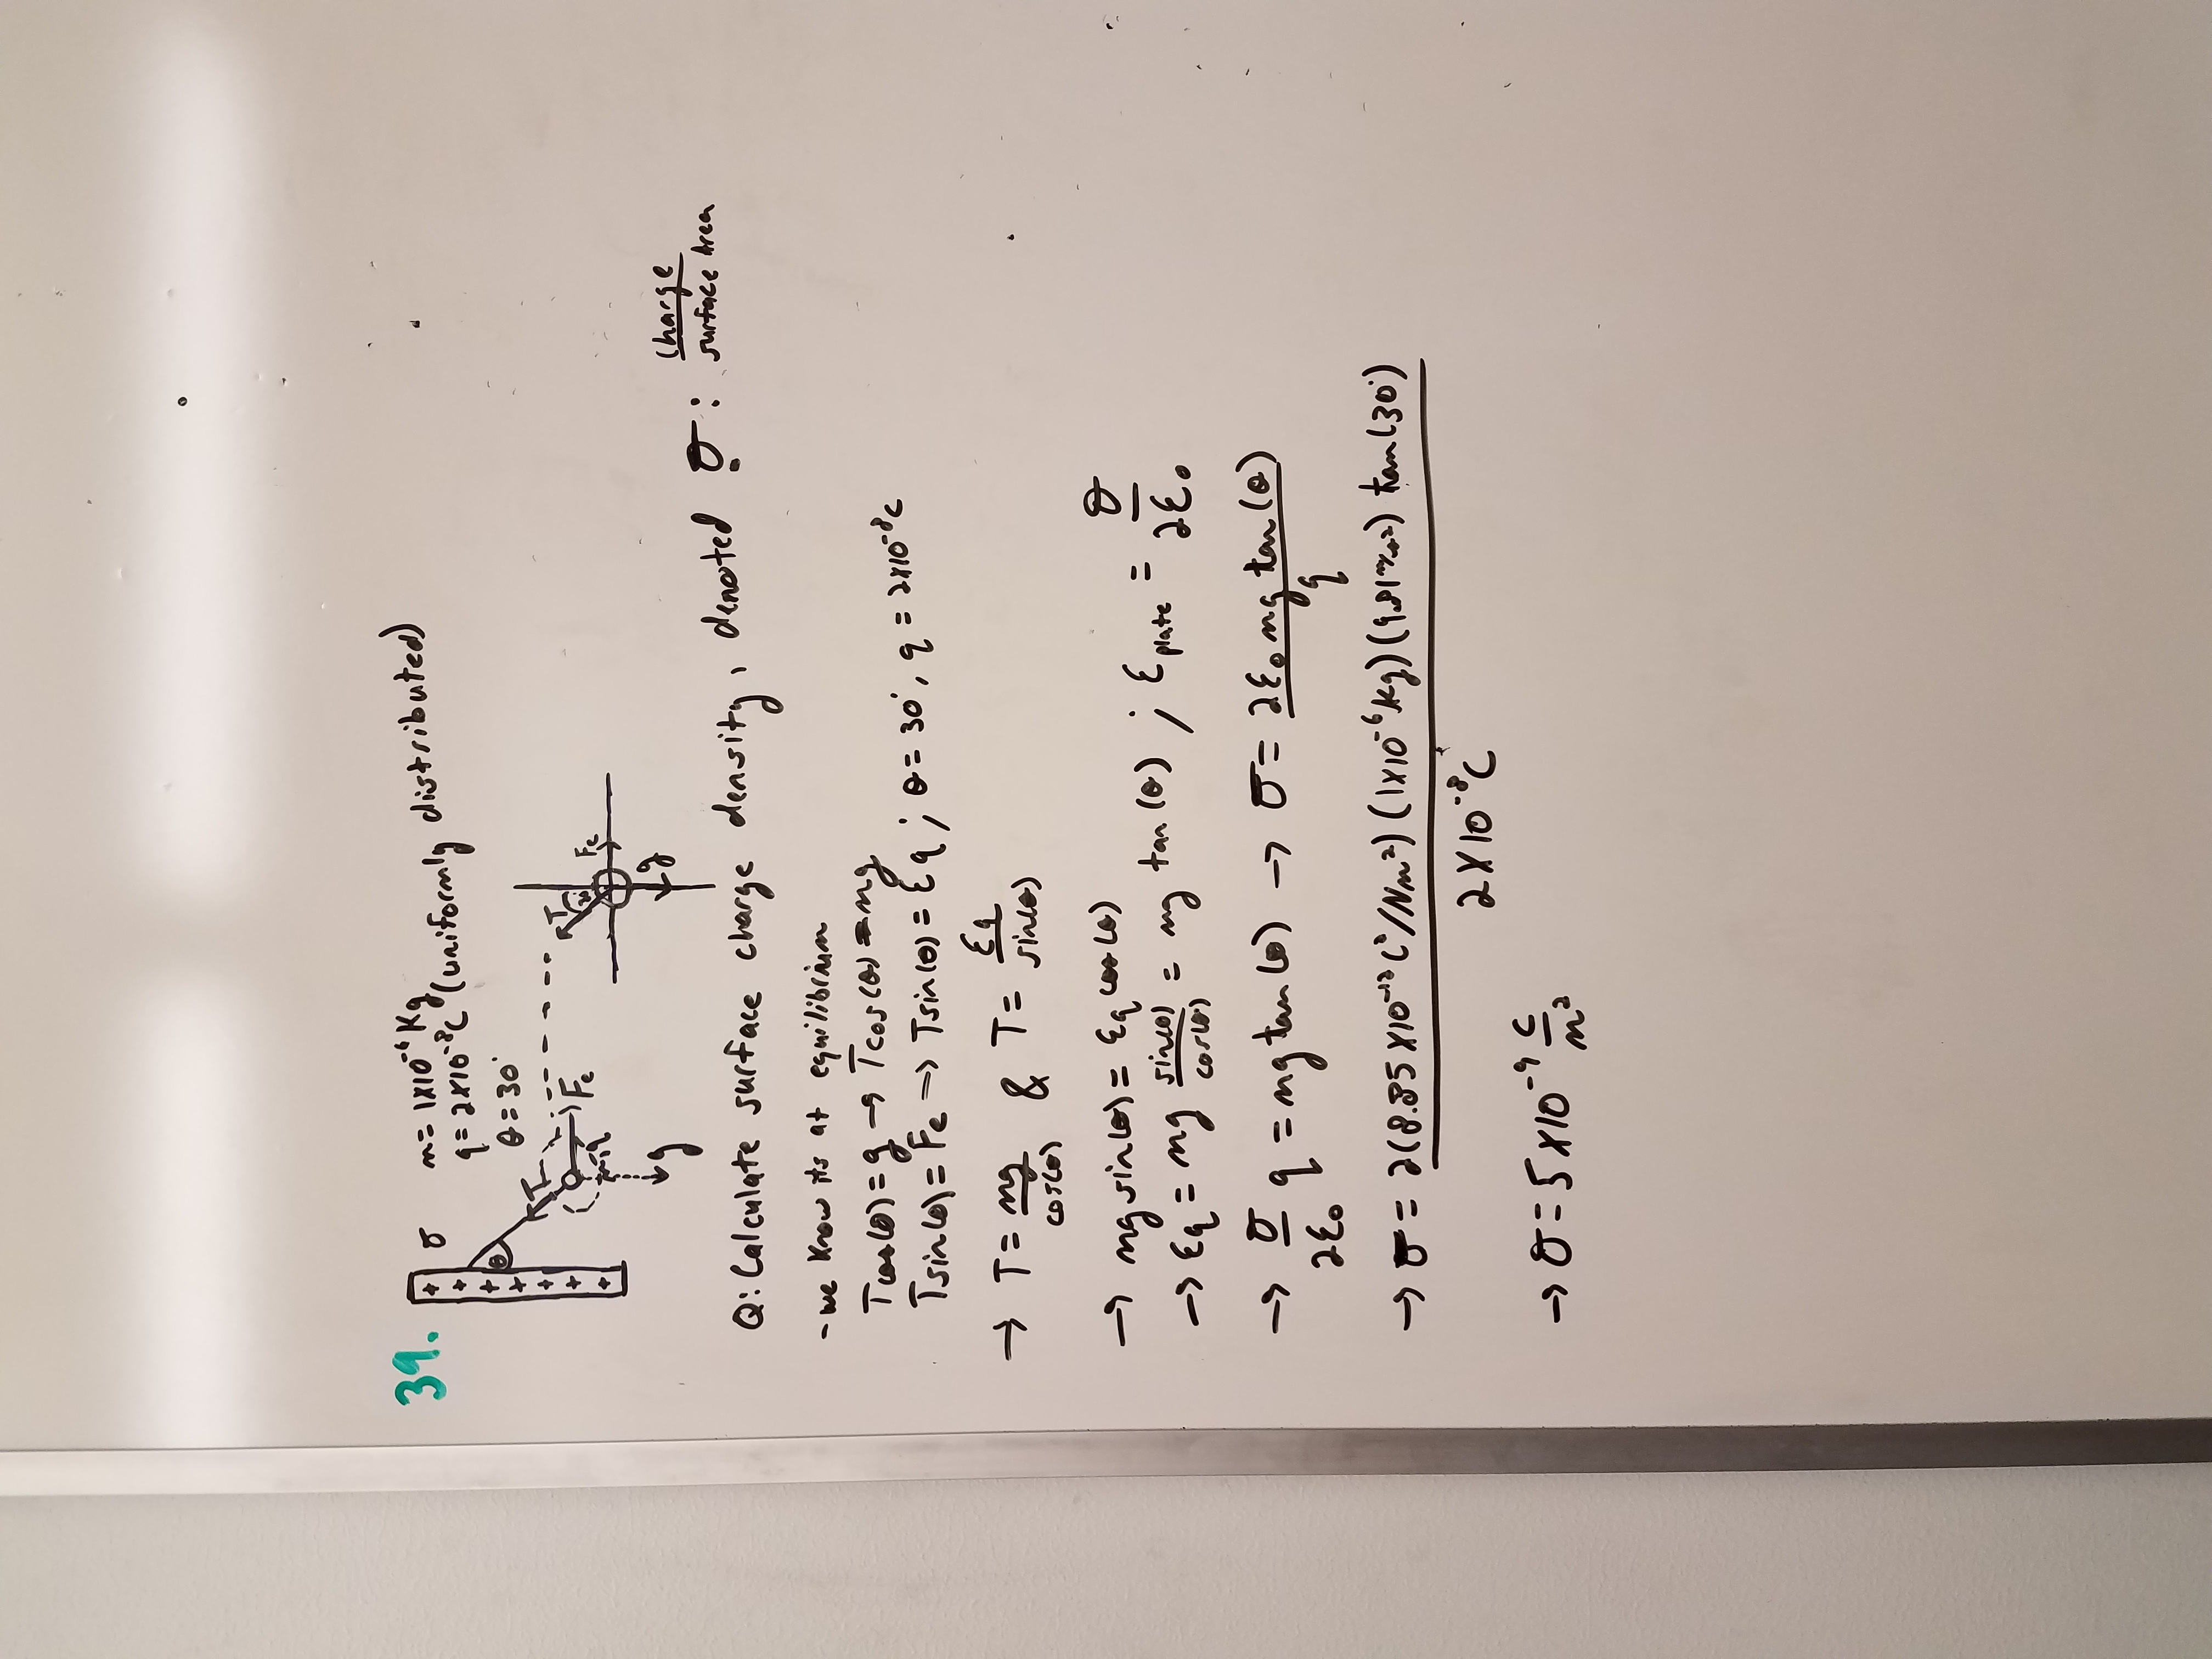 39.
σ
m = 1x10⁻⁶ Kg
q = 2x10⁻⁸C (uniformly distributed)
θ = 30°
+
+
+
+
+
+
+
θ
T
Fe
q
g
T
30
Fe
g
Q: Calculate surface charge density, denoted σ : charge / surface Area
- we Know its at equilibrium
Tcos(θ) = g → Tcos(θ) = mg
Tsin(θ) = Fe => Tsin(θ) = Eq ; θ = 30°, q = 2x10⁻⁸C
→ T = mg / cos(θ) & T = Eq / sin(θ)
→ mg sin(θ) = Eq cos(θ)
→ Eq = mg sin(θ) / cos(θ) = mg tan(θ) ; E plate = σ / 2ε₀
→ σ / 2ε₀ q = mg tan(θ) → σ = 2ε₀ mg tan(θ) / q
→ σ = 2(8.85x10⁻¹² C²/Nm²) (1x10⁻⁶ Kg) (9.81 m/s²) tan(30°) / 2x10⁻⁸C
→ σ = 5x10⁻⁹ C / m²